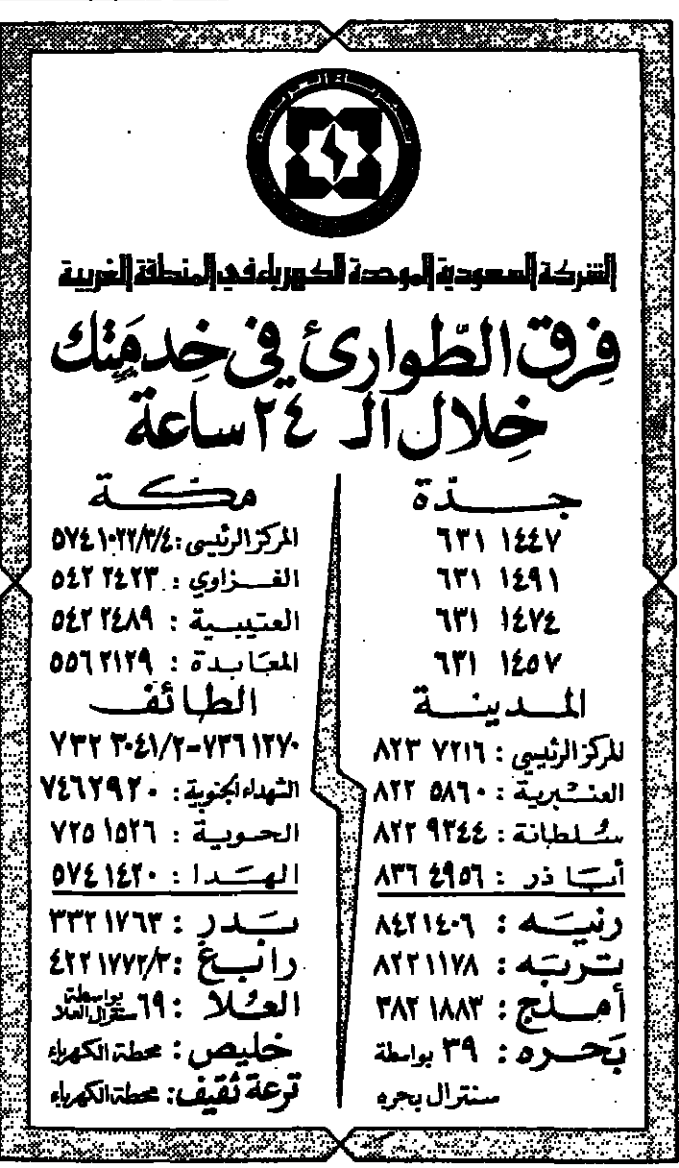 الشركة السعودية الموحدة للكهرباء في المنطقة الغربية
فِرق الطّوارئ في خِدمَتِك
خِلال الـ ٢٤ ساعة
جــدّة
٦٣١ ١٤٤٧
٦٣١ ١٤٩١
٦٣١ ١٤٧٤
٦٣١ ١٤٥٧
المــدينــة
المركز الرئيسي : ٨٢٣ ٧٢١٦
العنـبرية : ٨٢٢ ٥٨٦٠
سُـلطانة : ٨٢٢ ٩٣٤٤
أبـا ذر : ٨٣٦ ٤٩٥٦
رنيـه : ٨٤٢١٤٠٦
تـربـه : ٨٢٢١١٧٨
أمـلج : ٣٨٢ ١٨٨٣
بَحـره : ٣٩ بواسطة
سنترال بحره
مكـة
المركز الرئيسي : ٥٧٤١٠٢٢/٣/٤
الفـزاوي : ٥٤٢ ٢٤٢٣
العتيبـية : ٥٤٢ ٢٤٨٩
المعَـابـدة : ٥٥٦ ٢١٢٩
الطـائف
٧٣٢ ٣٠٤١/٢-٧٣٦١٢٧٠
الشهداء الجنوبية : ٧٤٦٢٩٢٠
الحـوية : ٧٢٥ ١٥٢٦
الهـدا : ٥٧٤ ١٤٢٠
بـدر : ٣٣٢ ١٧٦٣
رابـغ : ٤٢٢١٧٧٢/٣
العُـلا : ٦٩ بواسطة سنترال العلا
خليص : محطة الكهرباء
ترعة ثقيف : محطة الكهرباء